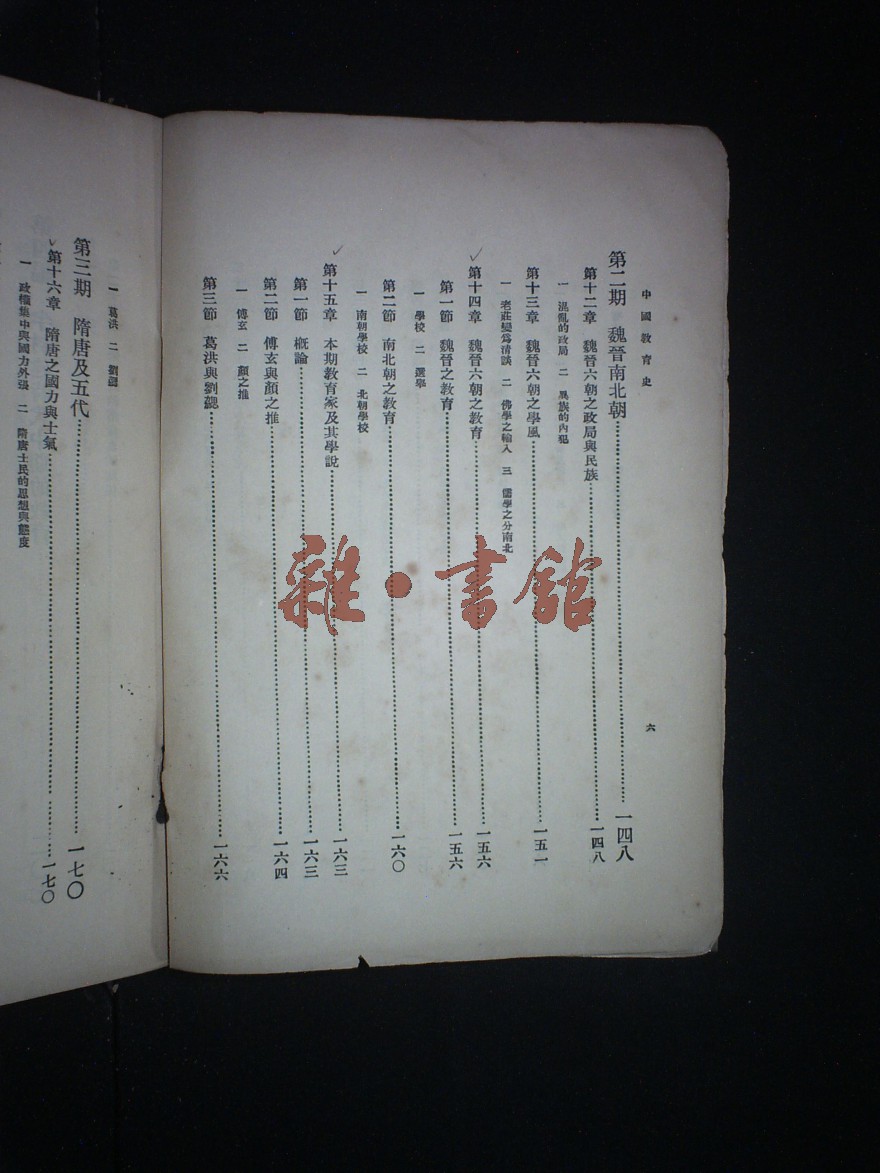 中國教育史
六
第二期 魏晉南北朝…………一四八
第十二章 魏晉六朝之政局與民族…………一四八
一 混亂的政局 二 異族的內犯
第十三章 魏晉六朝之學風…………一五一
一 老莊變爲清談 二 佛學之輸入 三 儒學之分南北
第十四章 魏晉六朝之教育…………一五六
第一節 魏晉之教育…………一五六
一 學校 二 選舉
第二節 南北朝之教育…………一六〇
一 南朝學校 二 北朝學校
第十五章 本期教育家及其學說…………一六三
第一節 概論…………一六三
第二節 傅玄與顏之推…………一六四
一 傅玄 二 顏之推
第三節 葛洪與劉勰…………一六六
一 葛洪 二 劉勰
第三期 隋唐及五代…………一七〇
第十六章 隋唐之國力與士氣…………一七〇
一 政權集中與國力外張 二 隋唐士民的思想與態度
雜·書館